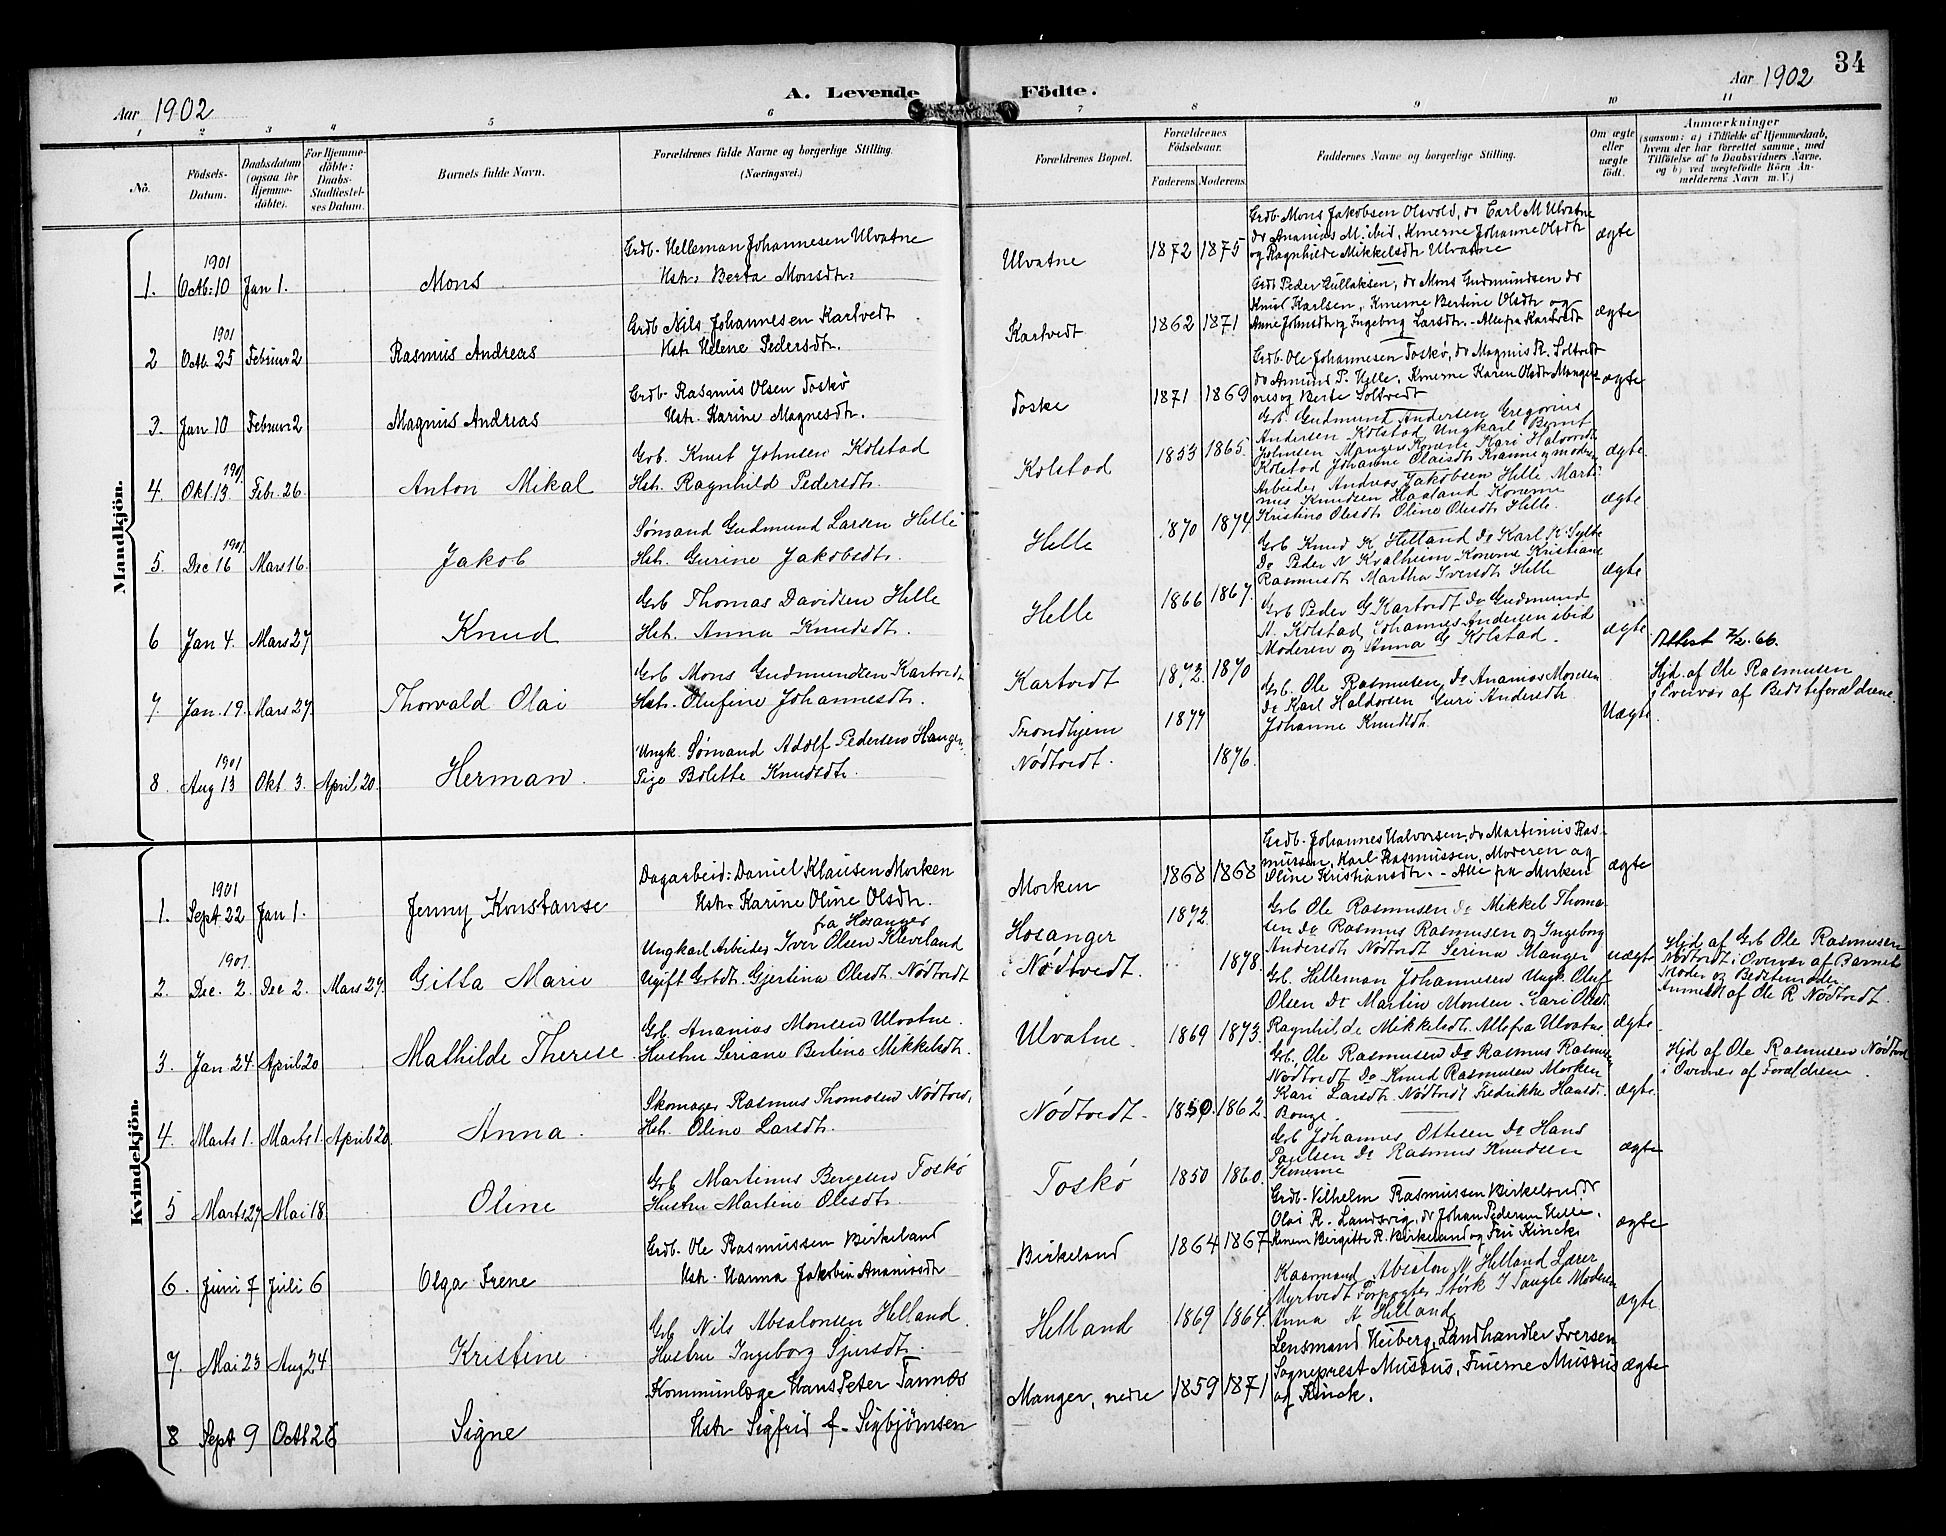 34
Aar 1902
A. Levende Födte.
Aar 1902
1 2 3 4 5 6 7 8 9 10 11
No.
Födsels-Datum.
Daabsdatum (ogsaa for Hjemme-döbte).
For Hjemme-döbte: Daabs-Stadfæstel-ses Datum.
Barnets fulde Navn.
Forældrenes fulde Navne og borgerlige Stilling. (Næringsvei.)
Forældrenes Bopæl.
Forældrenes Födselsaar.
Faderens. Moderens.
Faddernes Navne og borgerlige Stilling.
Om ægte eller uægte födt.
Anmærkninger
(saasom: a) i Tilfælde af Hjemmedaab, hvem der har forrettet samme, med Tilföielse af to Daabsvidners Navne, og b) ved uægtefödte Börn An-melderens Navn m. V.)
Mandkjön.
1. 1901 Octb. 10 Jan 1. Mons
Grdb. Helleman Johannesen Ulvatne
Hstr. Berta Monsdtr.
Ulvatne 1872 1875
Grdb. Mons Jakobsen Olsvold, do Carl M Ulvatne
do Ananias M. ibid, Konerne Johanne Olsdtr
og Ragnhilde Mikkelsdtr Ulvatne
ægte
2 1901 Octb. 25 Februar 2 Rasmus Andreas
Grdb Nils Johannesen Kartvedt
Hstr Helene Pedersdtr.
Kartvedt 1862 1871
Grdb Peder Gullaksen, do Mons Gudmundsen do
Knud Karlsen, Konerne Bertine Olsdtr og
Anne Johnsdtr og Ingeborg Larsdtr. - Alle fra Kartvedt
ægte
3. Jan 10 Februar 2 Magnus Andreas
Grdb. Rasmus Olsen Toskø
Hstr. Karine Magnesdtr.
Toske 1871 1869
Grdb. Ole Johannesen Toskø, do Magnus R. Soltvedt
do Amund P. Helle, Konerne Karen Olsdtr Manger
nes og Berte Soltvedt
ægte
4. 1901 Okt. 13 Feb. 26. Anton Mikal
Grb. Knut Johnsen Kolstad
Hstr. Ragnhild Pedersdtr.
Kolstad 1853 1865.
Grb. Gudmund Andersen Gregorius
Andersen Kolstad Ungkarl Bernt
Johnsen Manger Konerne Kari Halvorsdtr
Kolstad Johanne Olaisdtr
ægte
5. 1901 Dec 16 Mars 16. Jakob
Sømand Gudmund Larsen Helle
Hstr. Gurine Jakobsdtr.
Helle 1870 1874
Arbeider Andreas Jakobsen Helle Marti
nus Knudsen Haaland Konerne
Kristine Olesdtr Oline Olesdtr Helle.
ægte
6 Jan 4. Mars 27 Knud
Grb Thomas Davidsen Helle
Hstr. Anna Knudsdtr.
Helle 1866 1867.
Grb Knud K Helland Do Karl K. Sylte
Do Peder N Kvalheim Konerne Kristiane
Rasmusdtr Martha Iversdtr Helle
ægte
7. Jan. 19. Mars 27. Thorvald Olai
Grb Mons Gudmundsen Kartvedt
Hstr. Olufine Johannesdtr.
Kartvedt 1872. 1870
Grb Peder G Kartvedt Do Gudmund
A. Kolstad, Johannes Andersen ibid
Moderen og Anna G Kolstad.
ægte
Attest 7/2.66.
8 1901 Aug 13 Okt 3. April 20. Herman
Ungk. Sømand Adolf Pedersen
Pige Bolette Knudsdtr.
Trondhjem 1877
Nödtvedt. 1876.
Grb. Ole Rasmusen, Do Ananias Monsen
Do Karl Haldorsen Guri Andersdtr
Johanne Knudsdtr.
Uægte
Hjd. af Ole Rasmusen
i Overvær af Bedsteforældrene
Kvindekjön.
1. 1901 Sept 22 Jan 1. Jenny Konstanse
Dagarbeid: Daniel Klausen Morken
Hstr. Karine Oline Olsdtr.
Morken 1868 1868
Grdb. Johannes Halvorsen, do Martinius Ras-
mussen, Karl Rasmussen, Moderen og
Oline Kristiansdtr. - Alle fra Morken
ægte
2. 1901. Dec. 2. Dec 2. Mars 27. Gitta Marie
fra Hosanger
Ungkarl Arbeider Iver Olsen Kleveland
Ugift Grbdt. Gjertina Olesdt. Nödtvedt
Hosanger 1872.
Nödtvedt. 1878.
Grb Ole Rasmusen Do Mikkel Thoma-
sen Do Rasmus Rasmusen og Ingeborg
Andersdtr Nödtvedt Serina Manger
uægte
Hjd af Grb Ole Rasmusen
Nödtvedt i Overvær af Barnets
Moder og Bedstemoder
Anmeldt af Ole R Nödtvedt.
3. Jan 24 April 20 Mathilde Therese
Grb. Ananias Monsen Ulvatne.
Hustru Seriane Bertine Mikkelsdtr.
Ulvatne. 1869 1873.
Grb. Helleman Johannesen Ungk. Oluf
Olsen Do Martin Monsen Kari Olsdtr
Ragnhilde Mikkelsdtr. Alle fra Ulvatne
ægte
4. Marts 1. Marts 1. April 20. Anna.
Skomager Rasmus Thomasen
Hstr. Oline Larsdtr.
Nödtvedt. 1850. 1862.
Grb. Ole Rasmusen Do Rasmus Rasmusen
Nödtvedt Do Knud Rasmusen Morken
Kari Larsdtr Nödtvedt Fredrikke Hansdtr.
ægte.
Hjd af Ole Rasmusen Nödtvedt
i Overvær af Forældrene.
5 Marts 27 Mai 18. Oline
Grb Martinus Bergesen Toskö
Hustru Martine Olesdtr.
Toskö 1850 1860.
Grb Johannes Ottesen Do Hans
Paulsen Do Rasmus Knudsen
Konerne
ægte
6. Juni 7 Juli 6 Olga Irene
Grdb. Ole Rasmussen Birkeland
Hstr. Hanna Jakobin Ananiasdtr
Birkeland 1864 1867
Grdb. Vilhelm Rasmussen Birkeland, do
Olai R. Landsvig, do Johan Pedersen Helle,
Konem Birgitte R. Birkeland og Kinck
ægte
7. Mai 23 Aug 24 Kristine.
Grb Nils Absalonsen Helland.
Hustru Ingeborg Sjursdtr.
Helland 1869 1864.
Kaarmand Absalon N Helland Lærer
Myrtvedt Forpagter Störk Moderen
Anna A Helland
ægte
8 Sept 9 Octb 26 Signe
Kommunlæge Hans Peter Tannæs
Hstr Sigfrid f. Sigbjörnsen
Manger, nedre 1859 1871
Lensmand Heiberg, Landhandler Iversen
Sogneprest Musæus, Fruerne Musæus
og Kinck.
ægte